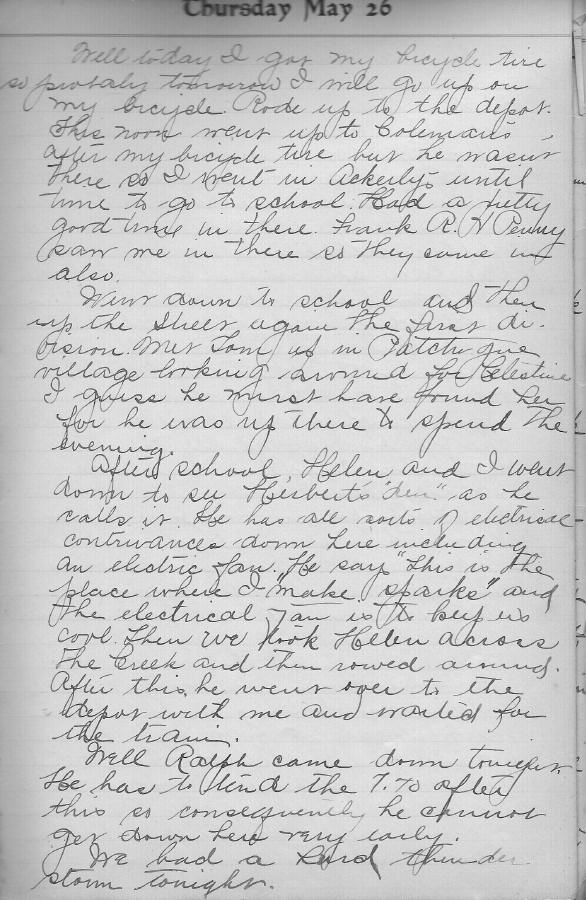 Thursday May 26
Well today I got my bicycle tire
so probaly tomorrow I will go up on
my bicycle. Rode up to the depot.
This noon went up to Colemans
after my bicycle tire but he wasnt
there so I went in Ackerlys until
time to go to school. Had a pretty
good time in there. Frank R. H Penny
saw me in there so they came in
also.
Went down to school and then
up the street again the first di-
vision. Met Tom up in Patchogue
village looking around for Celestine
I guess he must have found her
for he was up there to spend the
evening.
After school, Helen and I went
down to see Herberts "den" as he
calls it. He has all sorts of electrical
contrivances down here including
an electric fan. He say "This is the
place where I "make sparks" and
the electrical fan is to keep us
cool. Then we took Helen across
the Creek and then rowed around.
After this he went over to the
depot with me and waited for
the train.
Well Ralph came down tonight.
He has to tend the 7.70 after
this so consequently he cannot
get down here very early.
We had a hard thunder
storm tonight.